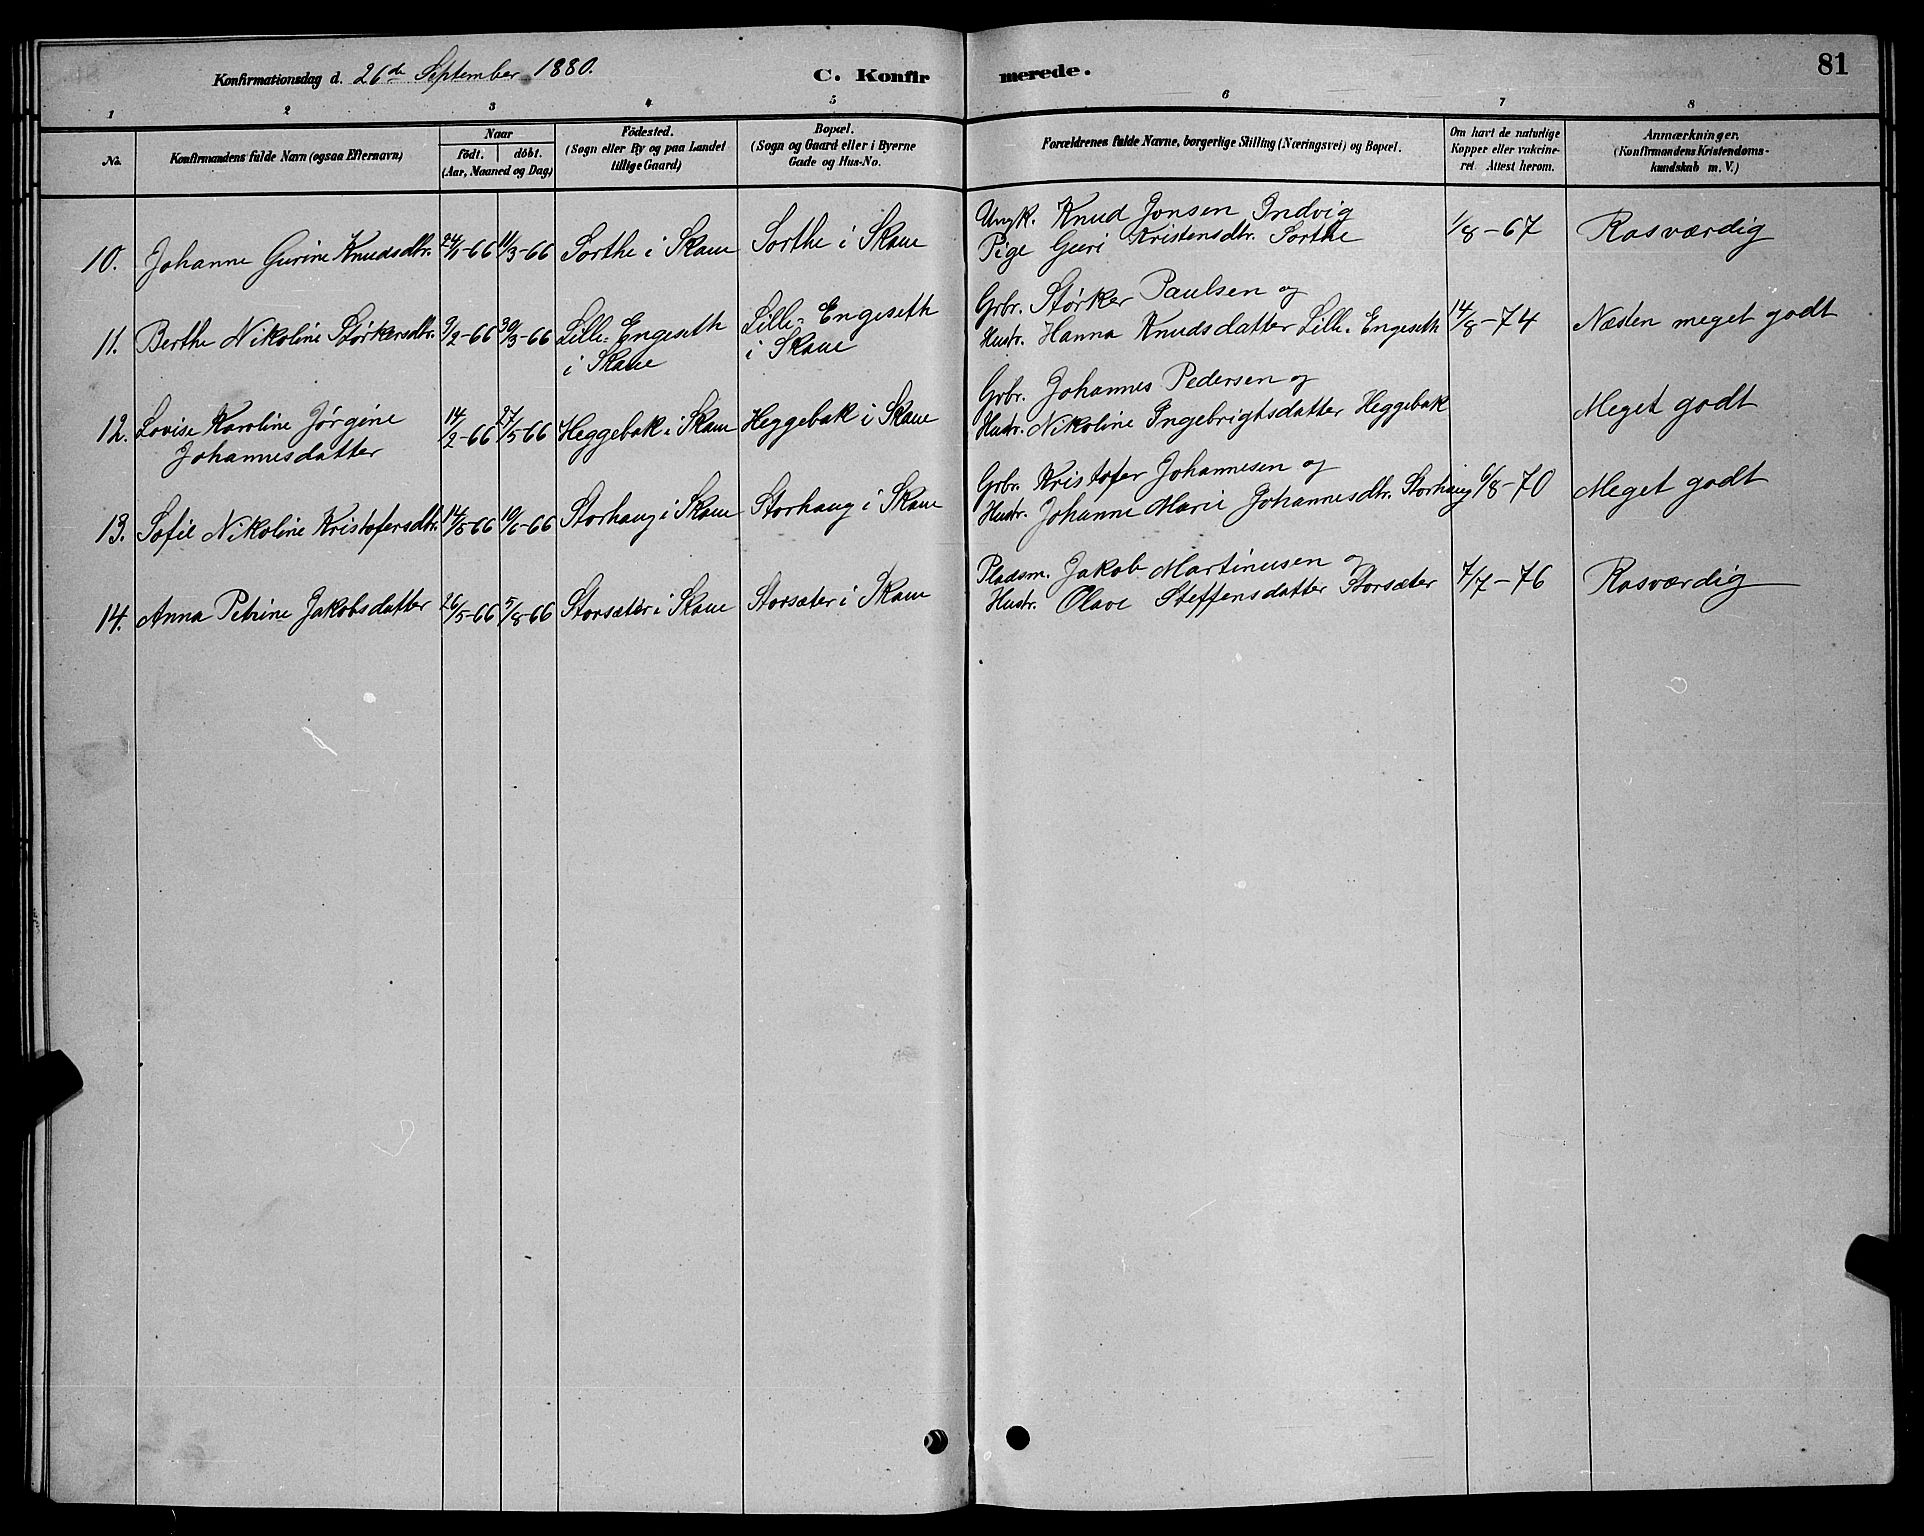 Konfirmationsdag d. 26de September 1880.
C. Konfirmerede.
81
1 2 3 4 5 6 7 8
No.
Konfirmandens fulde Navn (ogsaa Efternavn)
Naar
födt. döbt.
(Aar, Maaned og Dag)
Födested.
(Sogn eller By og paa Landet
tillige Gaard)
Bopæl.
(Sogn og Gaard eller i Byerne
Gade og Hus-No.
Forældrenes fulde Navne, borgerlige Stilling (Næringsvei) og Bopæl.
Om havt de naturlige
Kopper eller vakcine-
ret. Attest herom.
Anmærkninger.
(Konfirmandens Kristendoms-
kundskab m. V.)
10. Johanne Gurine Knudsdtr. -66 11/3-66 Sorthe i Skaue Sorthe i Skaue
Ungk. Knud Jonsen Indvig
Pige Guri Kristensdtr. Sorthe
1/8-67 Rosværdig
11. Berthe Nikoline Størkersdtr. 9/2-66 30/3-66 Lille-Engeseth
i Skaue
Lille-Engeseth
i Skaue
Grbr. Størker Paulsen og
Hustr. Hanna Knudsdatter Lille-Engeseth
14/8-74 Næsten meget godt
12. Lovise Karoline Jørgine
Johannesdatter
14/2-66 27/5-66 Heggebak i Skaue Heggebak i Skaue
Grbr. Johannes Pedersen og
Hustr. Nikoline Ingebrigtsdatter Heggebak
Meget godt
13. Sofie Nikoline Kristofersdtr. 14/5-66 10/6-66 Storhaug i Skaue Storhaug i Skaue
Grbr. Kristofer Johannesen og
Hustr. Johanne Marie Johannesdtr. Storhaug
6/8-70 Meget godt
14. Anna Petrine Jakobsdatter 26/5-66 5/8-66 Storsæter i Skaue Storsæter i Skaue
Pladsm. Jakob Martinusen og
Hustr. Olave Steffensdatter Storsæter
7/7-76 Rosværdig